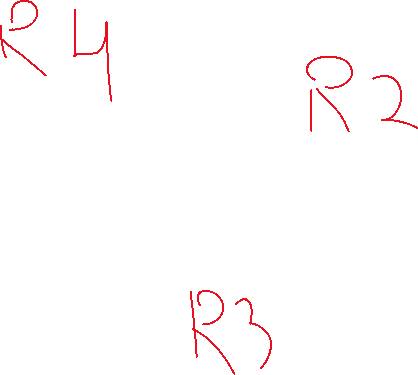 R4
R2
R3